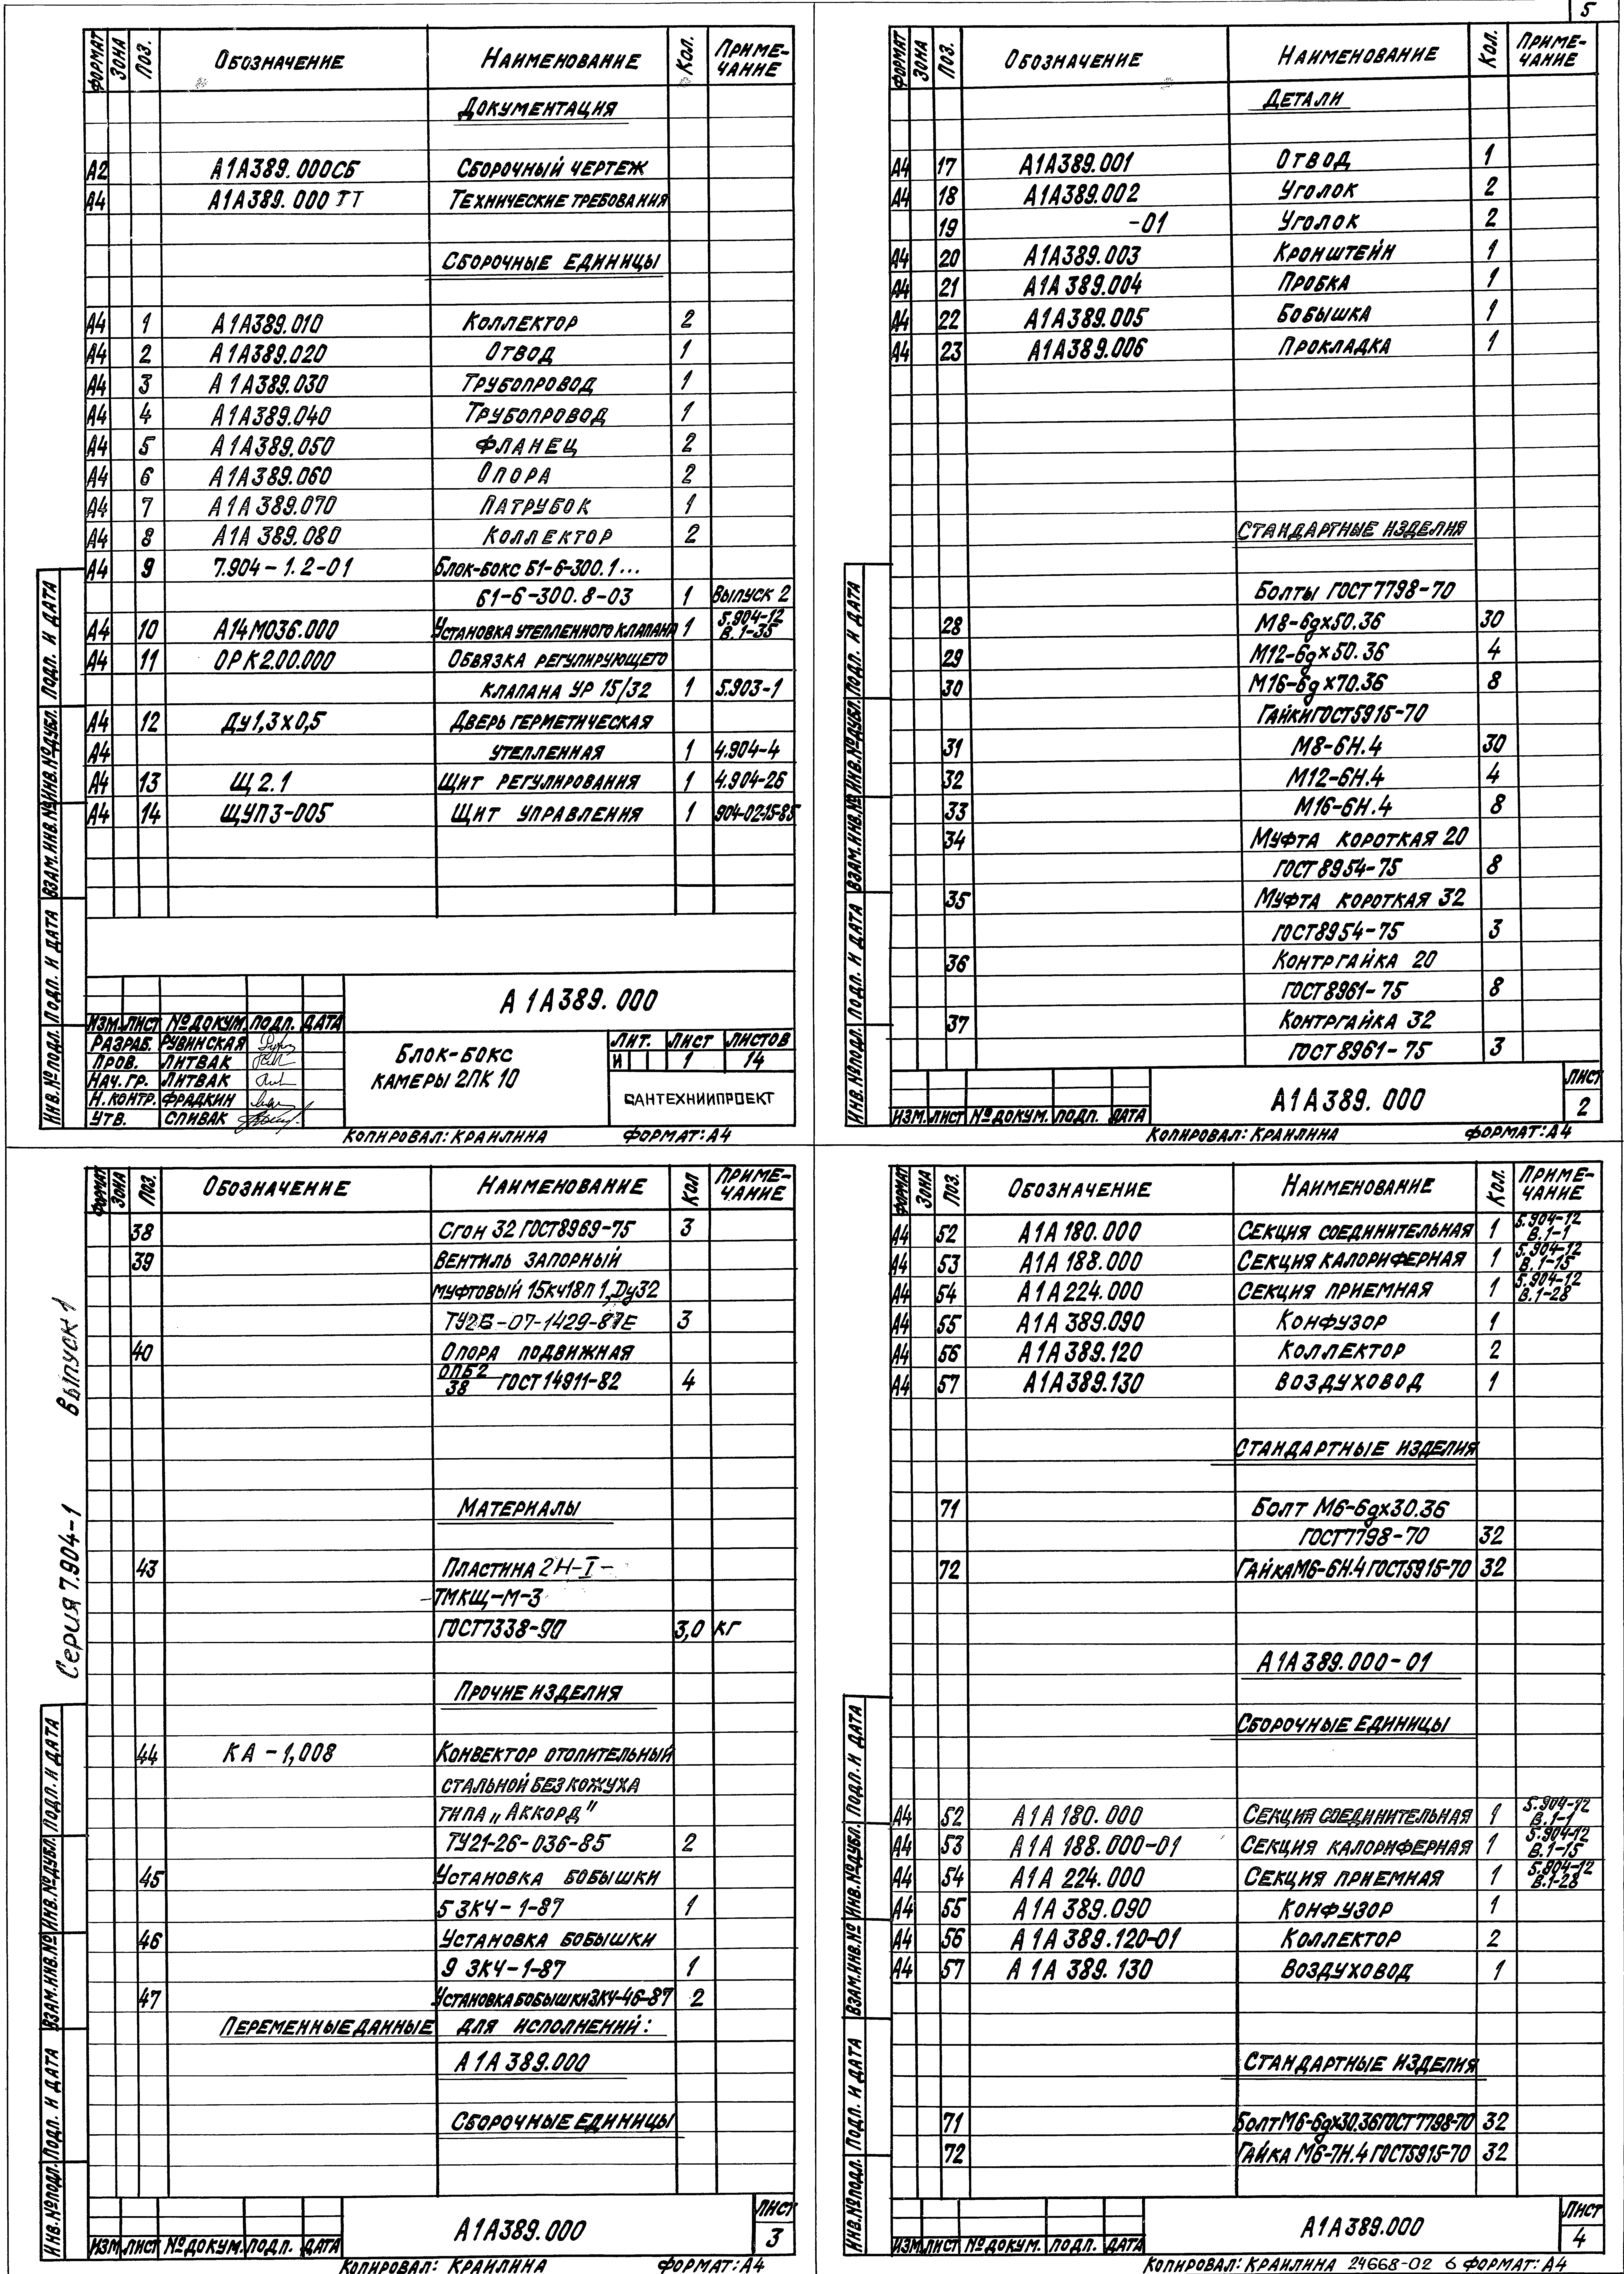 5
ФОРМАТ ЗОНА ПОЗ. ОБОЗНАЧЕНИЕ НАИМЕНОВАНИЕ КОЛ. ПРИМЕ-ЧАНИЕ
ДОКУМЕНТАЦИЯ
А2 А1А389.000СБ СБОРОЧНЫЙ ЧЕРТЕЖ
А4 А1А389.000 ТТ ТЕХНИЧЕСКИЕ ТРЕБОВАНИЯ
СБОРОЧНЫЕ ЕДИНИЦЫ
А4 1 А1А389.010 КОЛЛЕКТОР 2
А4 2 А1А389.020 ОТВОД 1
А4 3 А1А389.030 ТРУБОПРОВОД 1
А4 4 А1А389.040 ТРУБОПРОВОД 1
А4 5 А1А389.050 ФЛАНЕЦ 2
А4 6 А1А389.060 ОПОРА 2
А4 7 А1А389.070 ПАТРУБОК 1
А4 8 А1А389.080 КОЛЛЕКТОР 2
А4 9 7.904-1.2-01 БЛОК-БОКС Б1-6-300.1...
Б1-6-300.8-03 1 ВЫПУСК 2
А4 10 А14М036.000 УСТАНОВКА УТЕПЛЕННОГО КЛАПАНА 1 5.904-12 В.1-35
А4 11 ОРК2.00.000 ОБВЯЗКА РЕГУЛИРУЮЩЕГО
КЛАПАНА УР 15/32 1 5.903-1
А4 12 ДУ1,3х0,5 ДВЕРЬ ГЕРМЕТИЧЕСКАЯ
А4 УТЕПЛЕННАЯ 1 4.904-4
А4 13 Щ2.1 ЩИТ РЕГУЛИРОВАНИЯ 1 4.904-26
А4 14 ЩУПЗ-005 ЩИТ УПРАВЛЕНИЯ 1 904-02-15-85
А1А389.000
ИЗМ. ЛИСТ № ДОКУМ. ПОДП. ДАТА
РАЗРАБ. РУВИНСКАЯ
ПРОВ. ЛИТВАК
НАЧ. ГР. ЛИТВАК
Н.КОНТР. ФРАДКИН
УТВ. СПИВАК
БЛОК-БОКС
КАМЕРЫ 2ПК 10
ЛИТ. ЛИСТ ЛИСТОВ
И 1 14
САНТЕХНИИПРОЕКТ
ИНВ.№ПОДЛ. ПОДП. И ДАТА ВЗАМ.ИНВ.№ ИНВ.№ДУБЛ. ПОДП. И ДАТА
КОПИРОВАЛ: КРАИЛИНА ФОРМАТ: А4
ФОРМАТ ЗОНА ПОЗ. ОБОЗНАЧЕНИЕ НАИМЕНОВАНИЕ КОЛ. ПРИМЕ-ЧАНИЕ
ДЕТАЛИ
А4 17 А1А389.001 ОТВОД 1
А4 18 А1А389.002 УГОЛОК 2
19 -01 УГОЛОК 2
А4 20 А1А389.003 КРОНШТЕЙН 1
А4 21 А1А389.004 ПРОБКА 1
А4 22 А1А389.005 БОБЫШКА 1
А4 23 А1А389.006 ПРОКЛАДКА 1
СТАНДАРТНЫЕ ИЗДЕЛИЯ
БОЛТЫ ГОСТ 7798-70
28 М8-6gх50.36 30
29 М12-6gх50.36 4
30 М16-6gх70.36 8
ГАЙКИ ГОСТ5915-70
31 М8-6Н.4 30
32 М12-6Н.4 4
33 М16-6Н.4 8
34 МУФТА КОРОТКАЯ 20
ГОСТ 8954-75 8
35 МУФТА КОРОТКАЯ 32
ГОСТ8954-75 3
36 КОНТРГАЙКА 20
ГОСТ8961-75 8
37 КОНТРГАЙКА 32
ГОСТ 8961-75 3
ИЗМ. ЛИСТ № ДОКУМ. ПОДП. ДАТА
А1А389.000
ЛИСТ 2
ИНВ.№ПОДЛ. ПОДП. И ДАТА ВЗАМ.ИНВ.№ ИНВ.№ДУБЛ. ПОДП. И ДАТА
КОПИРОВАЛ: КРАИЛИНА ФОРМАТ: А4
Серия 7.904-1 Выпуск 1
ФОРМАТ ЗОНА ПОЗ. ОБОЗНАЧЕНИЕ НАИМЕНОВАНИЕ КОЛ ПРИМЕ-ЧАНИЕ
38 СГОН 32 ГОСТ8969-75 3
39 ВЕНТИЛЬ ЗАПОРНЫЙ
МУФТОВЫЙ 15кч18п 1, Ду32
ТУ26-07-1429-87Е 3
40 ОПОРА ПОДВИЖНАЯ
ОПБ2/38 ГОСТ 14911-82 4
МАТЕРИАЛЫ
43 ПЛАСТИНА 2Н-I-
-ТМКЩ-М-3
ГОСТ7338-90 3,0 КГ
ПРОЧИЕ ИЗДЕЛИЯ
44 КА-1,008 КОНВЕКТОР ОТОПИТЕЛЬНЫЙ
СТАЛЬНОЙ БЕЗ КОЖУХА
ТИПА „АККОРД"
ТУ21-26-036-85 2
45 УСТАНОВКА БОБЫШКИ
5 ЗКЧ-1-87 1
46 УСТАНОВКА БОБЫШКИ
9 ЗКЧ-1-87 1
47 УСТАНОВКА БОБЫШКИ ЗКЧ-46-87 2
ПЕРЕМЕННЫЕ ДАННЫЕ ДЛЯ ИСПОЛНЕНИЙ:
А1А389.000
СБОРОЧНЫЕ ЕДИНИЦЫ
ИЗМ ЛИСТ № ДОКУМ. ПОДП. ДАТА
А1А389.000
ЛИСТ 3
ИНВ.№ПОДЛ. ПОДП. И ДАТА ВЗАМ.ИНВ.№ ИНВ.№ДУБЛ. ПОДП. И ДАТА
КОПИРОВАЛ: КРАИЛИНА ФОРМАТ: А4
ФОРМАТ ЗОНА ПОЗ. ОБОЗНАЧЕНИЕ НАИМЕНОВАНИЕ КОЛ. ПРИМЕ-ЧАНИЕ
А4 52 А1А180.000 СЕКЦИЯ СОЕДИНИТЕЛЬНАЯ 1 5.904-12 В.1-1
А4 53 А1А188.000 СЕКЦИЯ КАЛОРИФЕРНАЯ 1 5.904-12 В.1-15
А4 54 А1А224.000 СЕКЦИЯ ПРИЕМНАЯ 1 5.904-12 В.1-28
А4 55 А1А389.090 КОНФУЗОР 1
А4 56 А1А389.120 КОЛЛЕКТОР 2
А4 57 А1А389.130 ВОЗДУХОВОД 1
СТАНДАРТНЫЕ ИЗДЕЛИЯ
71 БОЛТ М6-6gх30.36
ГОСТ7798-70 32
72 ГАЙКА М6-6Н.4 ГОСТ5915-70 32
А1А389.000-01
СБОРОЧНЫЕ ЕДИНИЦЫ
А4 52 А1А180.000 СЕКЦИЯ СОЕДИНИТЕЛЬНАЯ 1 5.904-12 В.1-1
А4 53 А1А188.000-01 СЕКЦИЯ КАЛОРИФЕРНАЯ 1 5.904-12 В.1-15
А4 54 А1А224.000 СЕКЦИЯ ПРИЕМНАЯ 1 5.904-12 В.1-28
А4 55 А1А389.090 КОНФУЗОР 1
А4 56 А1А389.120-01 КОЛЛЕКТОР 2
А4 57 А1А389.130 ВОЗДУХОВОД 1
СТАНДАРТНЫЕ ИЗДЕЛИЯ
71 БОЛТ М6-6gх30.36 ГОСТ 7798-70 32
72 ГАЙКА М6-7Н.4 ГОСТ5915-70 32
ИЗМ ЛИСТ № ДОКУМ. ПОДП. ДАТА
А1А389.000
ЛИСТ 4
ИНВ.№ПОДЛ. ПОДП. И ДАТА ВЗАМ.ИНВ.№ ИНВ.№ДУБЛ. ПОДП. И ДАТА
КОПИРОВАЛ: КРАИЛИНА 24668-02 6 ФОРМАТ: А4